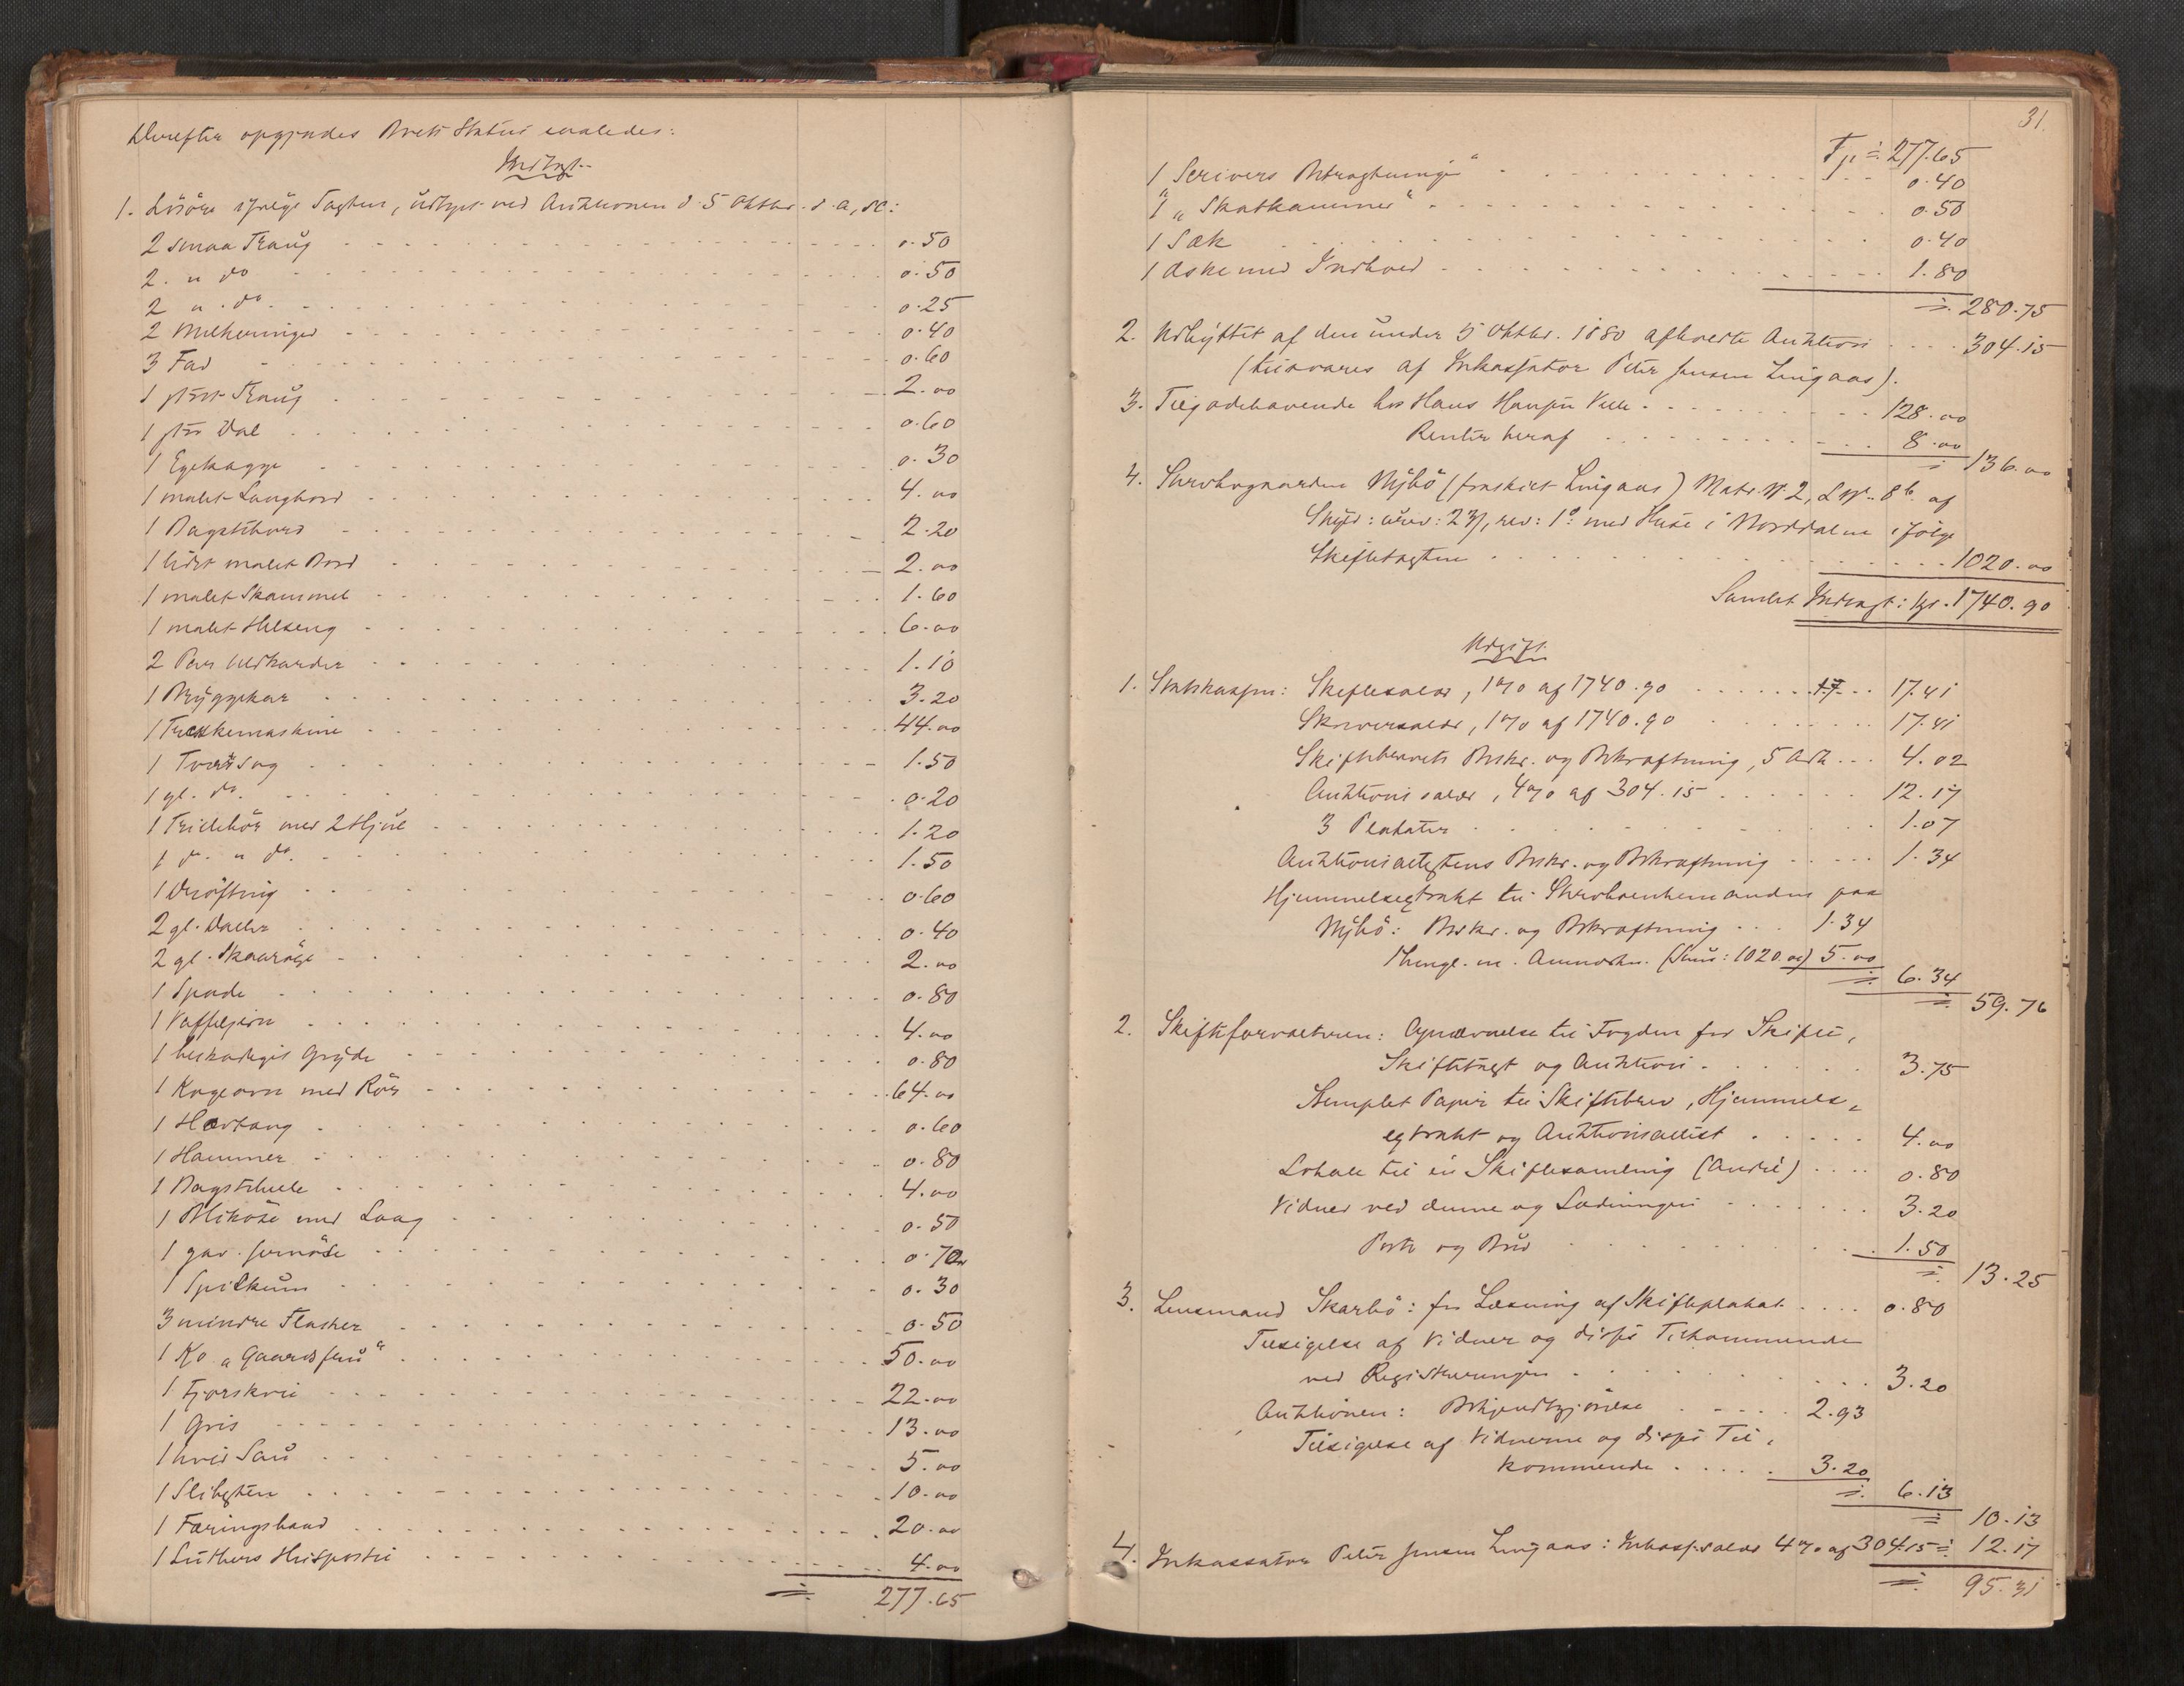 Derefter opgjordes Boets Status saaledes:
Indtægt.
1. Løsøre ifølge Taxten, udlagt ved Auktionen d. 5 Oktbr. d. A.,
2 smaa Traug 0.50
2 " do 0.50
2 " do 0.25
2 Melkeringer 0.40
3 Fad 0.60
1 stort Traug 2.00
1 stor Dal 0.60
1 Egekagge 0.30
1 malet Langbord 4.00
1 Bagstebord 2.20
1 lidet malet Bord 2.00
1 malet Skammel 1.60
1 malet Helseng 6.00
2 Par Uldkarder 1.10
1 Bryggekar 3.20
1 Træskemaskine 44.00
1 Tværsag 1.50
1 gl. do. 0.20
1 Trillebør med 2 Hjul 1.20
1 do " do. 1.50
1 Drøfting 0.60
2 gl. Daller 0.40
2 gl. 2.00
1 Spade 0.80
1 Vaffeljern 4.00
1 beskadiget Gryde 0.80
1 Kogeovn med Rør 64.00
1 Hovtang 0.60
1 Hammer 0.80
1 Bagstehelle 4.00
1 med Laag 0.50
1 0.70
1 Spilkum 0.30
3 mindre Flasker 0.50
1 Ko "Gaardsfru" 50.00
1 Fjorskvie 22.00
1 Gris 13.00
1 hvid Sau 5.00
1 Slibesten 10.00
1 Færingsbaad 20.00
1 Luthers Huspostil 4.00
= 277.65
31.
Fr = 277.65
1 Scrivers Betragtninger" 0.40
1 "Skatkammer" 0.50
1 Sæk 0.40
1 Æske med Indhold 1.80
= 280.75
2. Udbyttet af den under 5 Oktbr. 1880 afholdte Auktion 304.15
(tilsvares af Inkassator Peter Jensen Lingaas).
3. Tilgodehavende hos Hans Hansen 128.00
Renter heraf 8.00
= 136.00
4. Nybø (fraskilt Lingaas) Matr. N 2, L. N. 8b af
Skyld: urev: 2 , rev: 1 med Huse i Norddalen ifølge
Skiftetaxten 1020.00
Samlet Indtægt: kr. 1740.90
Udgift.
1. Statskassen: Skiftesalær, 1 % af 1740.90 17.41
Skriversalær, 1 % af 1740.90 17.41
Skiftebrevets Beskr. og Bekræftning, 5 Ark 4.02
Auktionssalær, 4 % af 304.15 12.17
3 Plakater 1.07
Auktionsattestens Beskr. og Bekræftning 1.34
Hjemmelsextrakt til paa
Nybø: Beskr. og Bekræftning 1.34
Thingl. m. Anmærkn. (Sum: 1020.00) 5.00
= 6.34
= 59.76
2. Skifteforvalteren: Opnævnelse til Fogden for Skifte,
Skiftetaxt og Auktion 3.75
Stemplet Papir til Skiftebrev, Hjemmels-
extrakt og Auktionsattest 4.00
Lokale til en Skiftesamling (Andel) 0.80
Vidner ved denne og Lodningen 3.20
Porto og Bud 1.50
= 13.25
3. Lensmand Skarbø: for Læsning af Skifteplakat 0.80
Tilsigelse af Vidner og disses Tilkommende
ved Registreringen 3.20
Auktionen: Bekjendtgjørelse 2.93
Tilsigelse af Vidnerne og disses Til-
kommende 3.20
= 6.13
= 10.13
4. Inkassator Peter Jensen Lingaas: Inkass.salær 4 % af 304.15 = 12.17
= 95.31